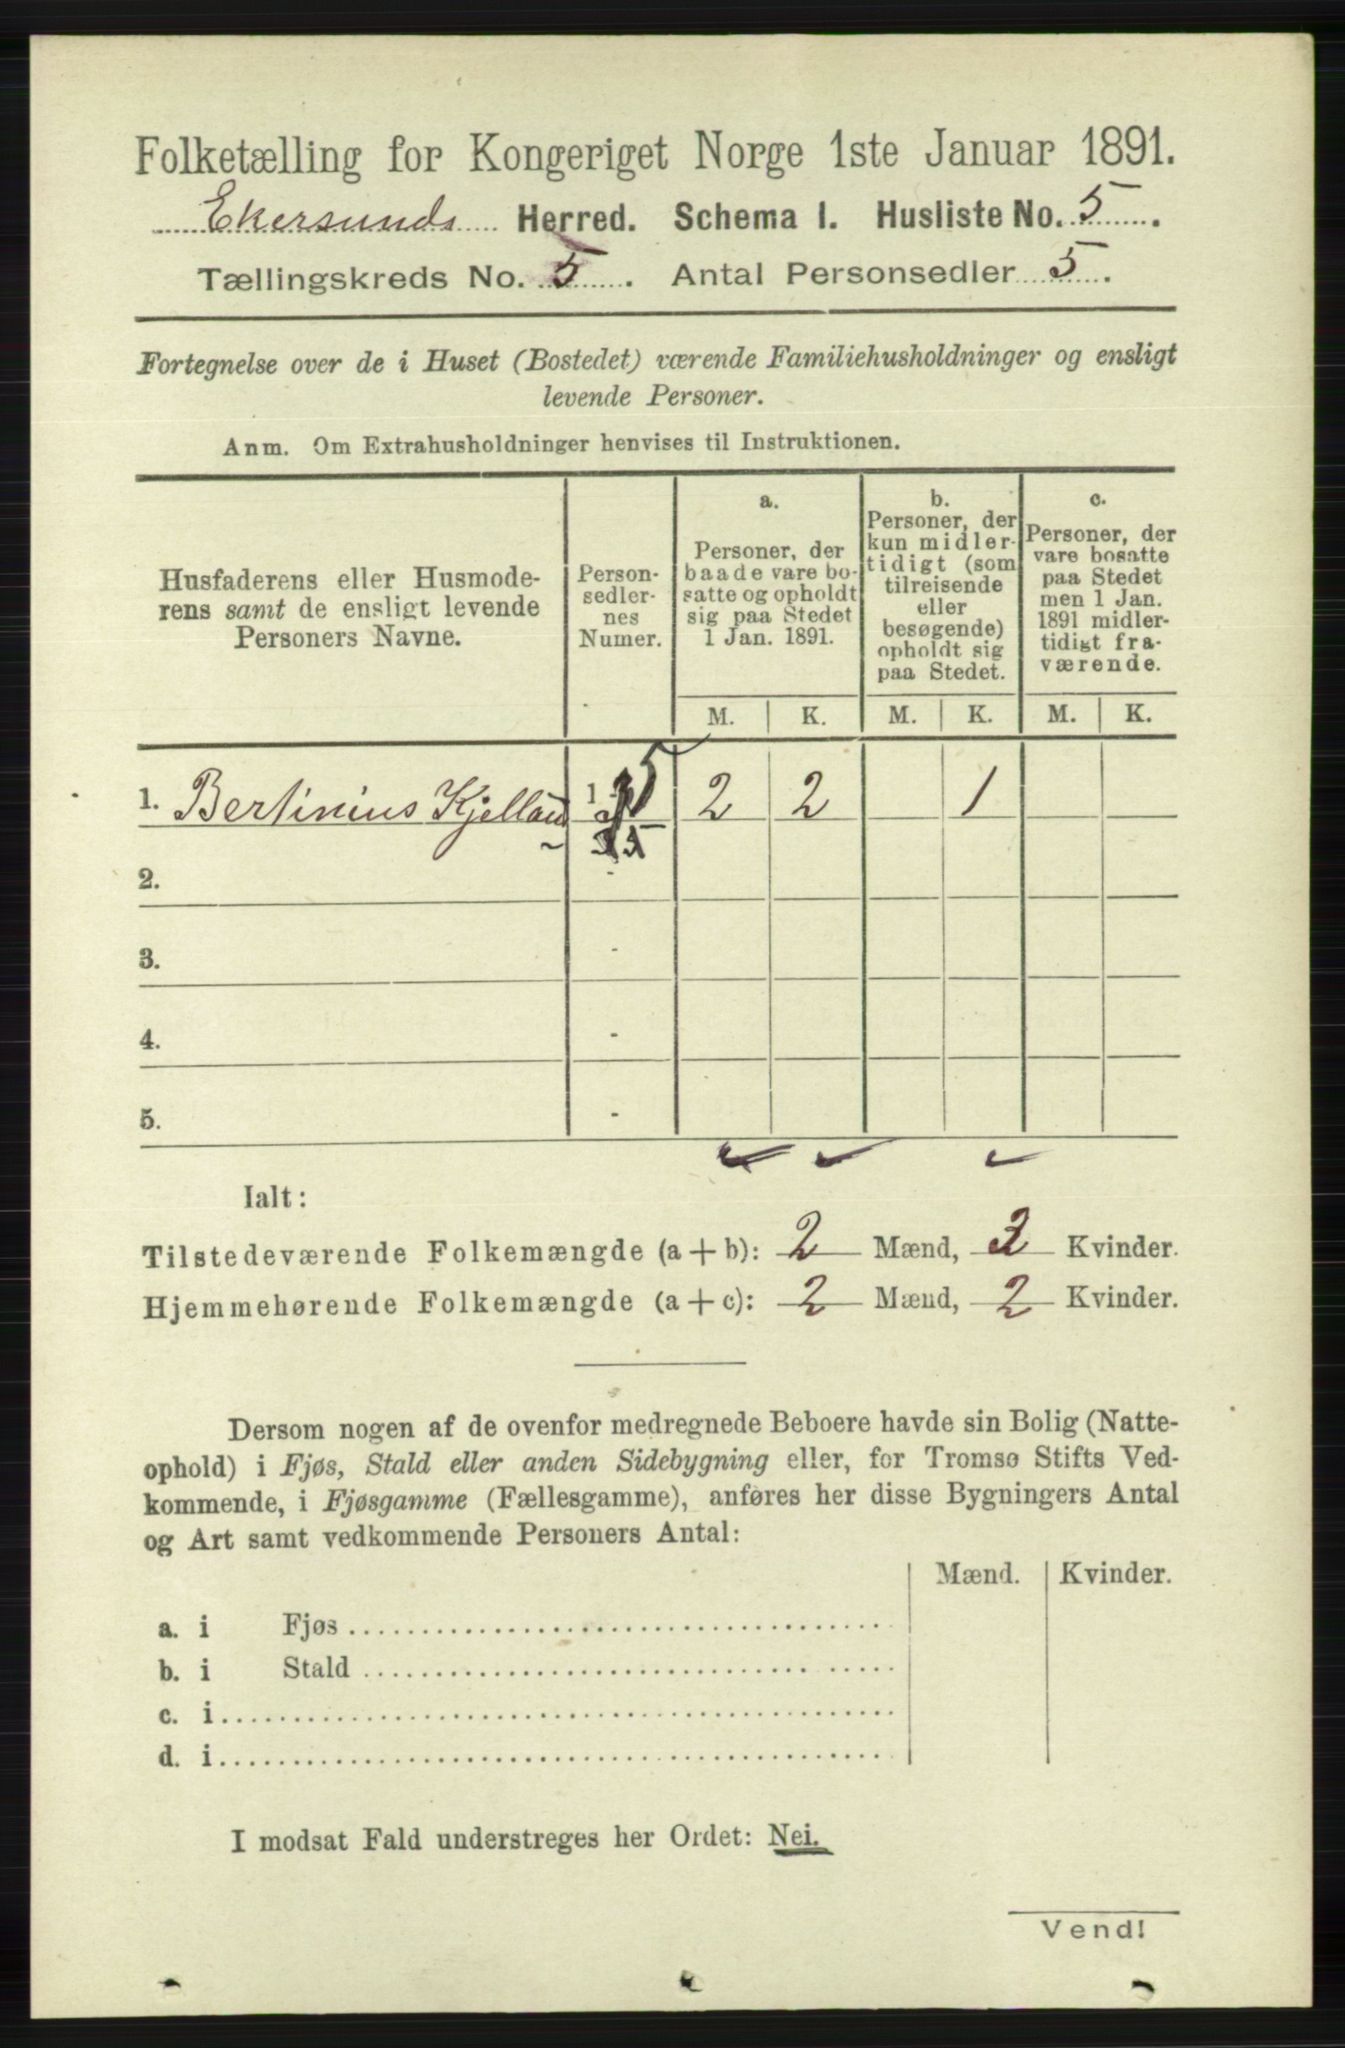 Folketælling for Kongeriget Norge 1ste Januar 1891.
Ekersunds Herred. Schema I. Husliste No. 5.
Tællingskreds No. 5. Antal Personsedler 5.
Fortegnelse over de i Huset (Bostedet) værende Familiehusholdninger og ensligt
levende Personer.
Anm. Om Extrahusholdninger henvises til Instruktionen.
Husfaderens eller Husmode-
rens samt de ensligt levende
Personers Navne.
Person-
sedler-
nes
Numer.
a.
Personer, der
baade vare bo-
satte og opholdt
sig paa Stedet
1 Jan. 1891.
b.
Personer, der
kun midler-
tidigt (som
tilreisende
eller
besøgende)
opholdt sig
paa Stedet.
c.
Personer, der
vare bosatte
paa Stedet
men 1 Jan.
1891 midler-
tidigt fra-
værende.
M. K. M. K. M. K.
1. Bertinius Kjelland 1 - 5 2 2 1
2. -
3. -
4. -
5. -
Ialt:
Tilstedeværende Folkemængde (a + b): 2 Mænd, 3 Kvinder.
Hjemmehørende Folkemængde (a + c): 2 Mænd, 2 Kvinder.
Dersom nogen af de ovenfor medregnede Beboere havde sin Bolig (Natte-
ophold) i Fjøs, Stald eller anden Sidebygning eller, for Tromsø Stifts Ved-
kommende, i Fjøsgamme (Fællesgamme), anføres her disse Bygningers Antal
og Art samt vedkommende Personers Antal:
Mænd. Kvinder.
a. i Fjøs
b. i Stald
c. i
d. i
I modsat Fald understreges her Ordet: Nei.
Vend!